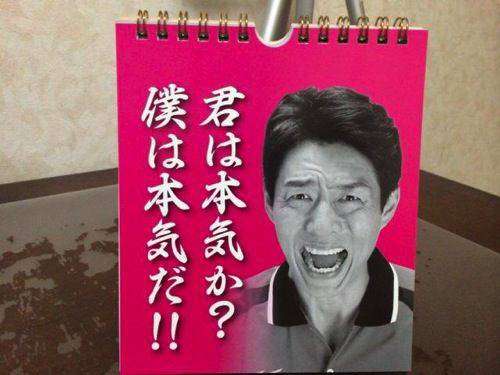 君は本気か?
僕は本気だ!!